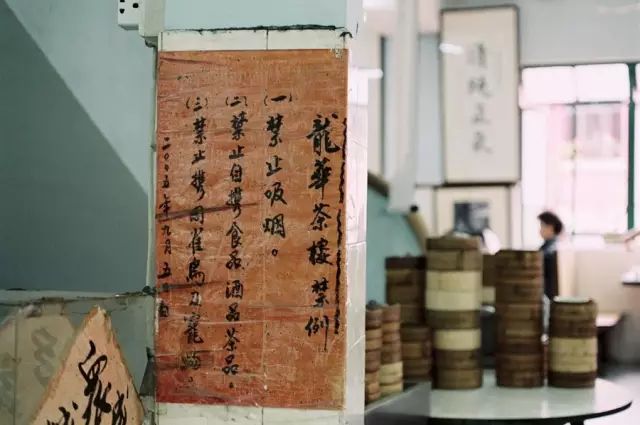 龍華茶樓禁例
(一)禁止吸烟。
(二)禁止自攜食品酒品茶品。
(三)禁止攜同雀鳥及寵物。
二〇〇五年九月五日